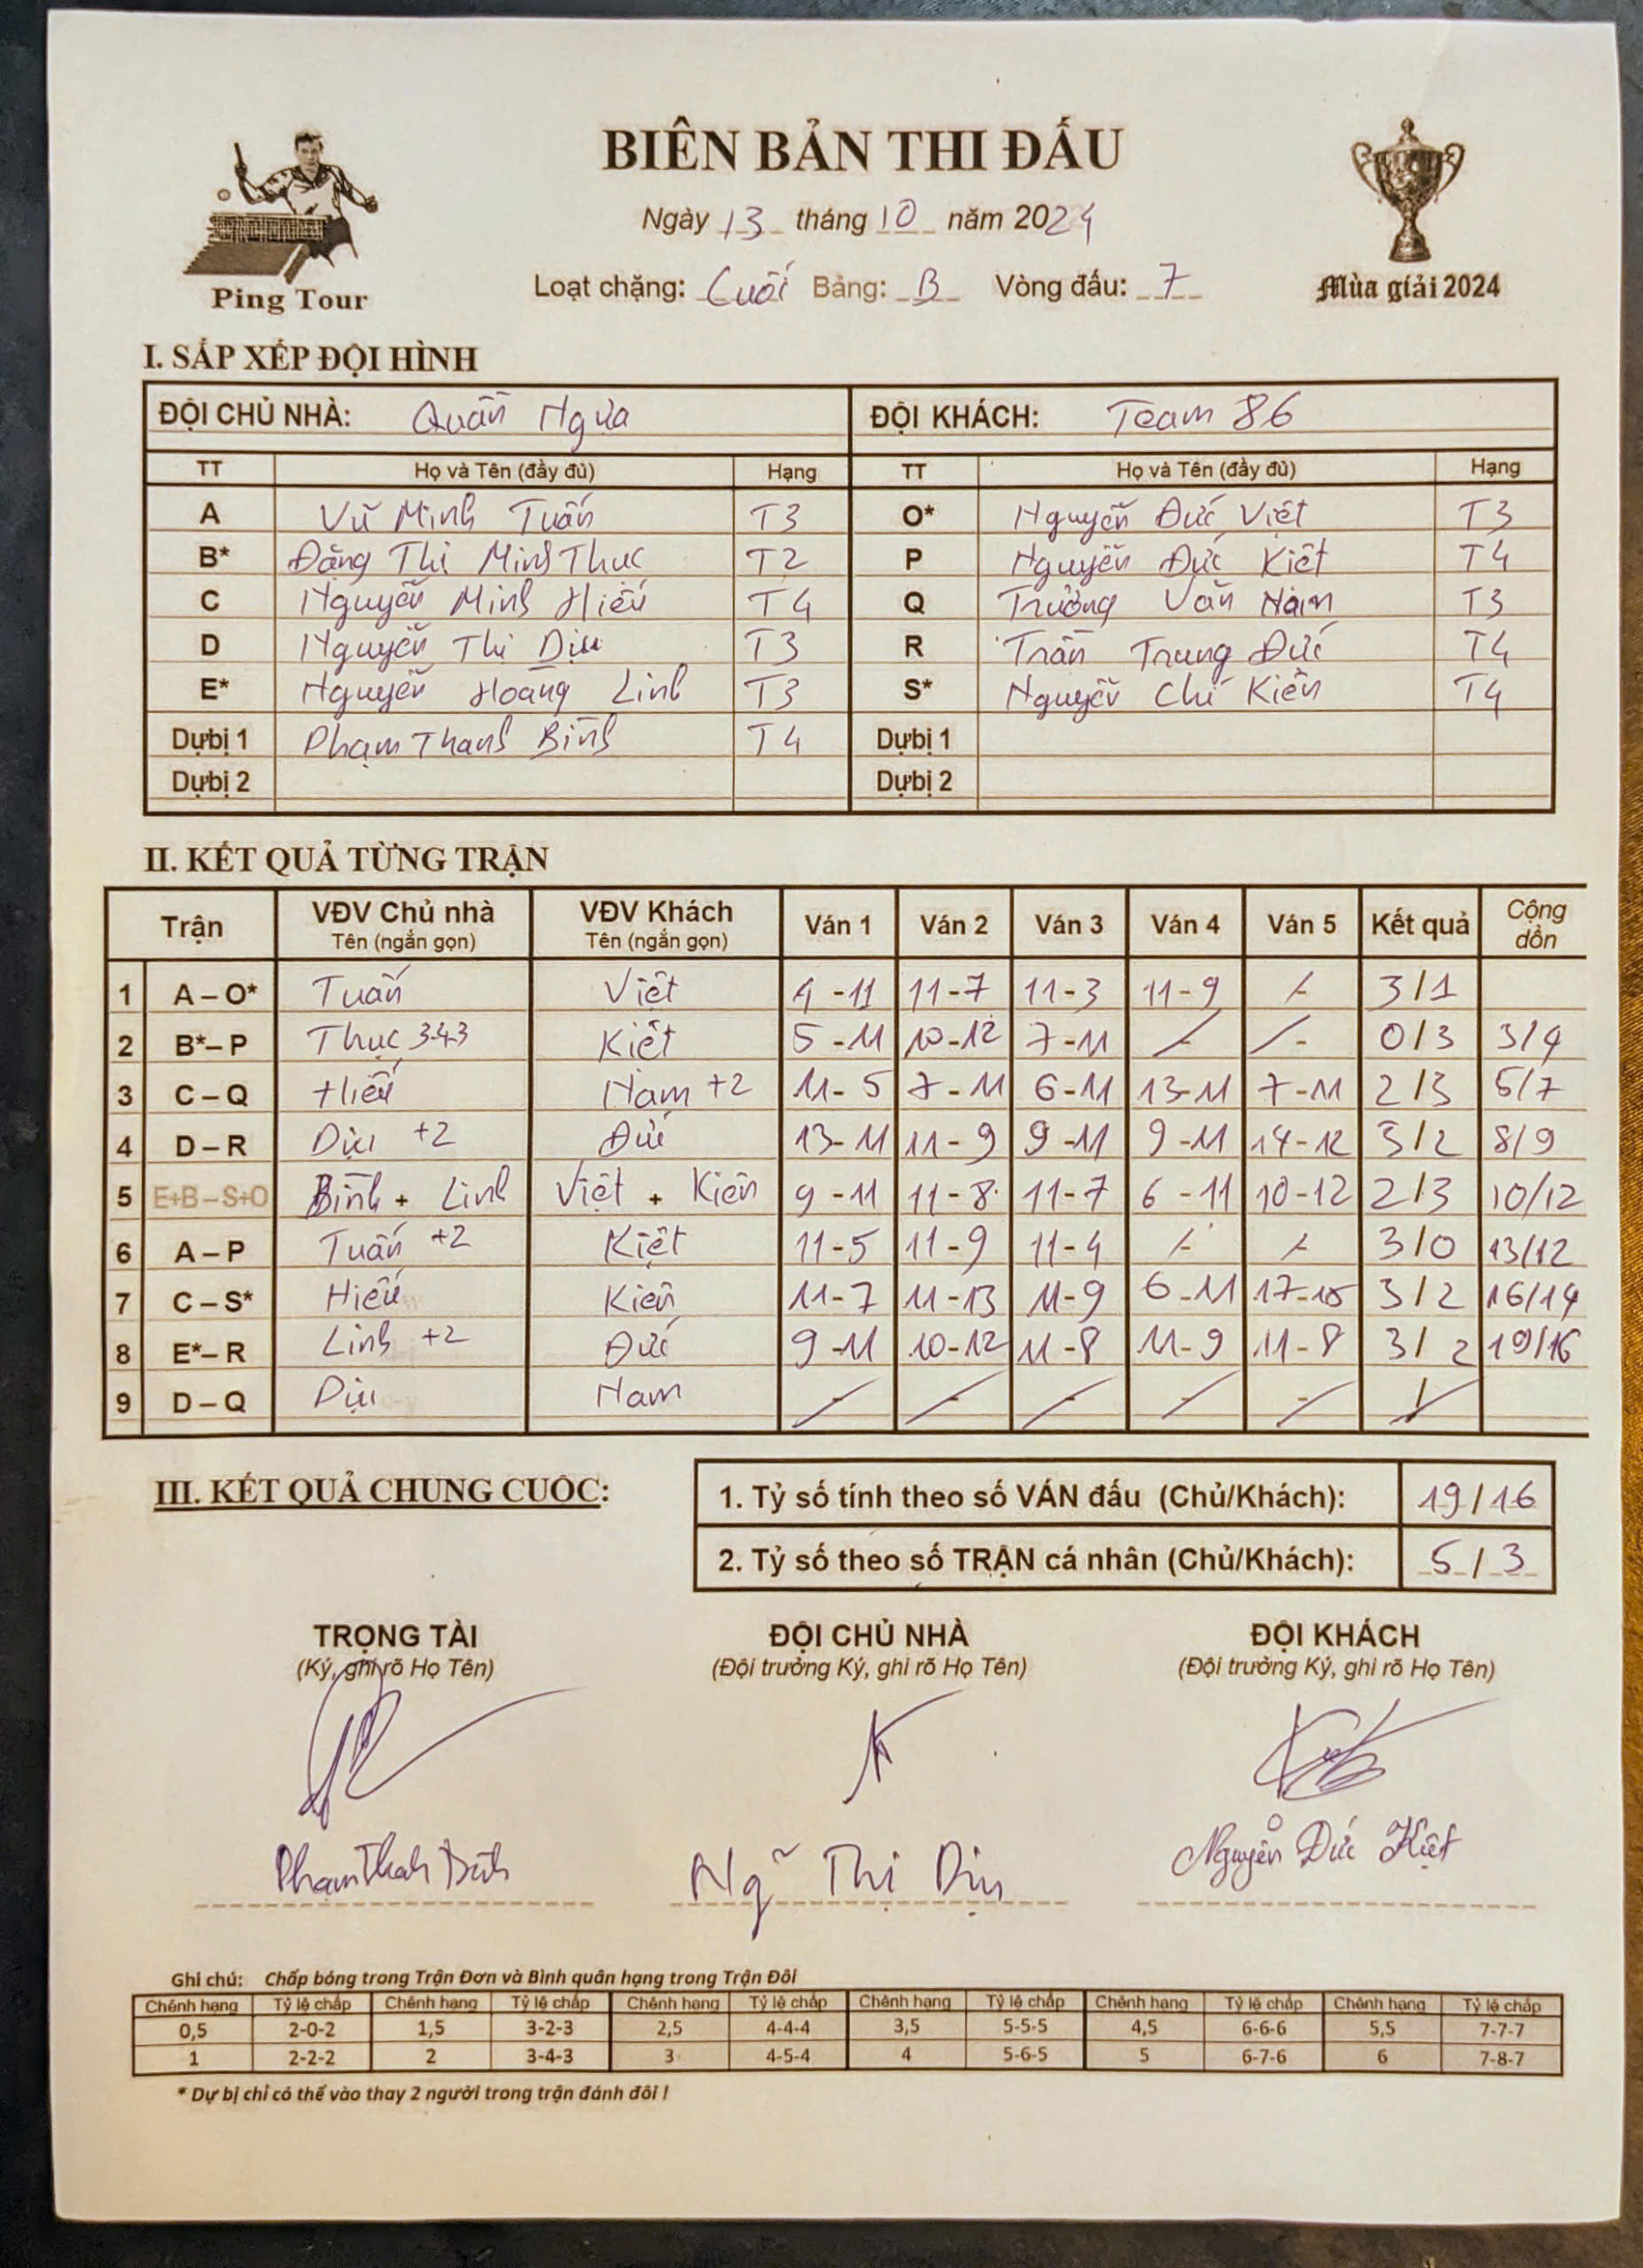 BIÊN BẢN THI ĐẤU
Ngày 13 tháng 10 năm 2024
Ping Tour
Loạt chặng: Cuối Bảng: B Vòng đấu: 7
Mùa giải 2024
I. SẮP XẾP ĐỘI HÌNH
ĐỘI CHỦ NHÀ: Quần Ngựa ĐỘI KHÁCH: Team 86
TT Họ và Tên (đầy đủ) Hạng TT Họ và Tên (đầy đủ) Hạng
A Vũ Minh Tuấn T3 O* Nguyễn Đức Việt T3
B* Đặng Thị Minh Thục T2 P Nguyễn Đức Kiệt T4
C Nguyễn Minh Hiếu T4 Q Trường Văn Nam T3
D Nguyễn Thị Dịu T3 R Trần Trung Đức T4
E* Nguyễn Hoàng Linh T3 S* Nguyễn Chí Kiên T4
Dự bị 1 Phạm Thanh Bình T4 Dự bị 1
Dự bị 2 Dự bị 2
II. KẾT QUẢ TỪNG TRẬN
Trận VĐV Chủ nhà Tên (ngắn gọn) VĐV Khách Tên (ngắn gọn) Ván 1 Ván 2 Ván 3 Ván 4 Ván 5 Kết quả Cộng dồn
1 A – O* Tuấn Việt 4 - 11 11 - 7 11 - 3 11 - 9 - 3 / 1
2 B* – P Thục 3-4-3 Kiệt 5 - 11 10 - 12 7 - 11 - - 0 / 3 3/4
3 C – Q Hiếu Nam +2 11 - 5 7 - 11 6 - 11 13 - 11 7 - 11 2 / 3 5/7
4 D – R Dịu +2 Đức 13 - 11 11 - 9 9 - 11 9 - 11 14 - 12 3 / 2 8/9
5 E+B – S+O Bình + Linh Việt + Kiên 9 - 11 11 - 8 11 - 7 6 - 11 10 - 12 2 / 3 10/12
6 A – P Tuấn +2 Kiệt 11 - 5 11 - 9 11 - 4 - - 3 / 0 13/12
7 C – S* Hiếu Kiên 11 - 7 11 - 13 11 - 9 6 - 11 17 - 15 3 / 2 16/14
8 E* – R Linh +2 Đức 9 - 11 10 - 12 11 - 8 11 - 9 11 - 8 3 / 2 19/16
9 D – Q Dịu Nam - - - - - /
III. KẾT QUẢ CHUNG CUỘC:
1. Tỷ số tính theo số VÁN đấu (Chủ/Khách): 19 / 16
2. Tỷ số theo số TRẬN cá nhân (Chủ/Khách): 5 / 3
TRỌNG TÀI ĐỘI CHỦ NHÀ ĐỘI KHÁCH
(Ký, ghi rõ Họ Tên) (Đội trưởng Ký, ghi rõ Họ Tên) (Đội trưởng Ký, ghi rõ Họ Tên)
Phạm Thanh Bình Ng̃ Thị Dịu Nguyễn Đức Kiệt
Ghi chú: Chấp bóng trong Trận Đơn và Bình quân hạng trong Trận Đôi
Chênh hạng Tỷ lệ chấp Chênh hạng Tỷ lệ chấp Chênh hạng Tỷ lệ chấp Chênh hạng Tỷ lệ chấp Chênh hạng Tỷ lệ chấp Chênh hạng Tỷ lệ chấp
0,5 2-0-2 1,5 3-2-3 2,5 4-4-4 3,5 5-5-5 4,5 6-6-6 5,5 7-7-7
1 2-2-2 2 3-4-3 3 4-5-4 4 5-6-5 5 6-7-6 6 7-8-7
* Dự bị chỉ có thể vào thay 2 người trong trận đánh đôi !